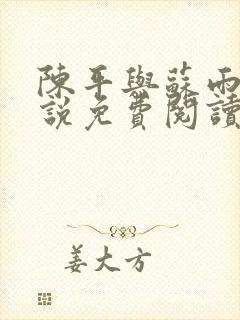 陳平與蘇雨
說免費閱讀
姜大方